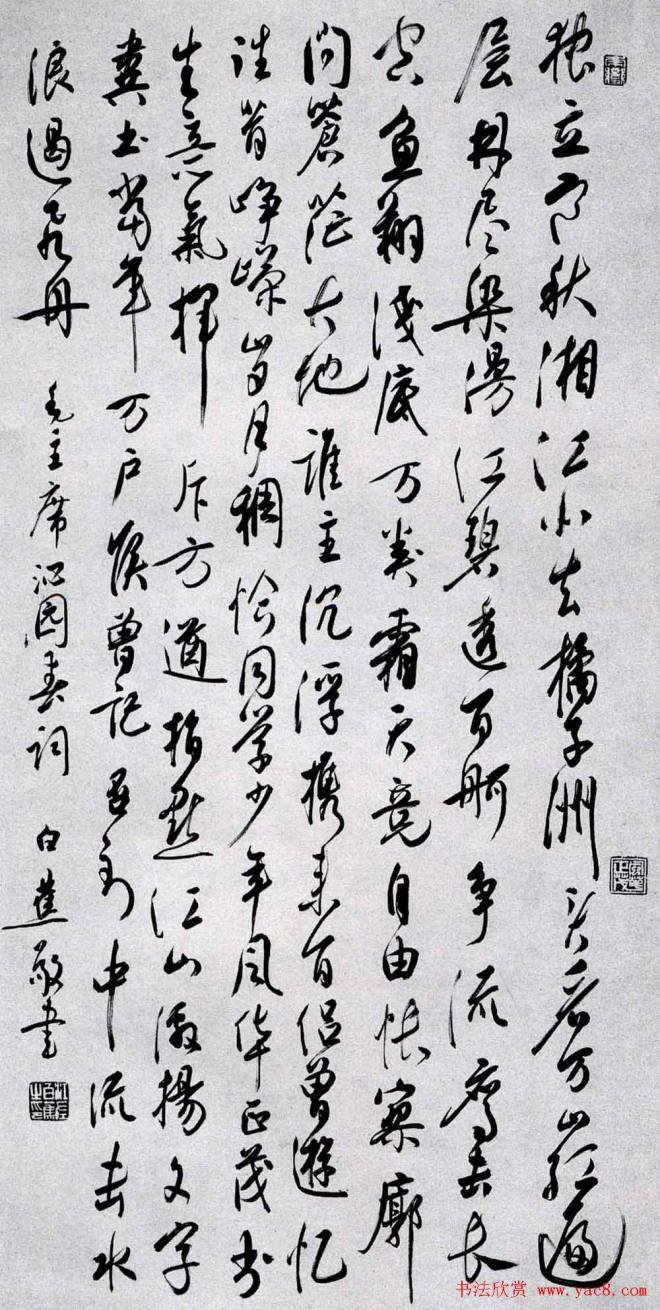 独立寒秋湘江北去橘子洲头看万山红遍
层林尽染漫江碧透百舸争流鹰击长
空鱼翔浅底万类霜天竞自由怅寥廓
问蒼茫大地谁主沉浮携来百侣曾遊忆
往昔峥嵘岁月稠恰同学少年风华正茂书
生意氣揮斥方遒指点江山激揚文字
粪土当年万户侯曾记否到中流击水
浪遏飞舟 毛主席沁园春词 白蕉敬书
书法欣赏 www.yac8.com